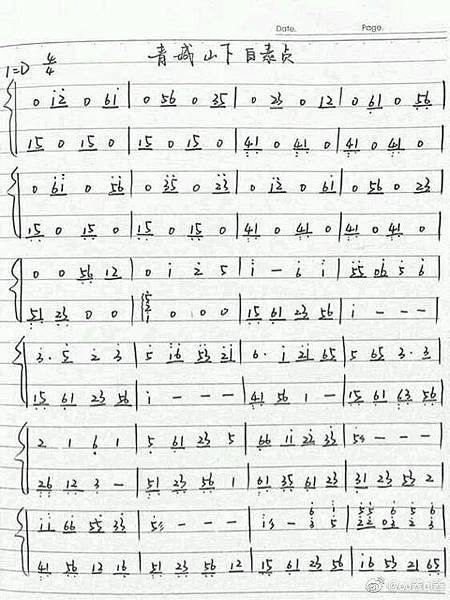 Date. Page.
青城山下白素贞
1=D 4/4
0 i2 0 6i | 0 56 0 35 | 0 23 0 12 | 0 61 0 56
15 0 15 0 | 15 0 15 0 | 41 0 41 0 | 41 0 41 0
0 6i 0 56 | 0 35 0 23 | 0 i2 0 6i | 0 56 0 23
15 0 15 0 | 15 0 15 0 | 41 0 41 0 | 41 0 41 0
0 0 56 12 | 0 i 2 5 | i - 6 i | 55 06 5 6
51 23 0 0 | 0 0 0 | 15 61 23 56 | i - - -
3. 5 2 3 | 5 i6 53 2i | 6. i 2i 65 | 5 65 3. 3
15 61 23 56 | i - - - | 41 56 1 - | 15 61 63 56
2 1 6 1 | 5 61 23 5 | 66 11 22 33 | 5 - - -
26 12 3 - | 51 23 56 1 | 61 35 61 23 | 31 23 53 2
ii 66 55 33 | 5 - - - | i - 3 5 | 22 03 2 3
41 56 12 16 | 51 23 56 12 | 15 61 23 56 | i6 53 21 65